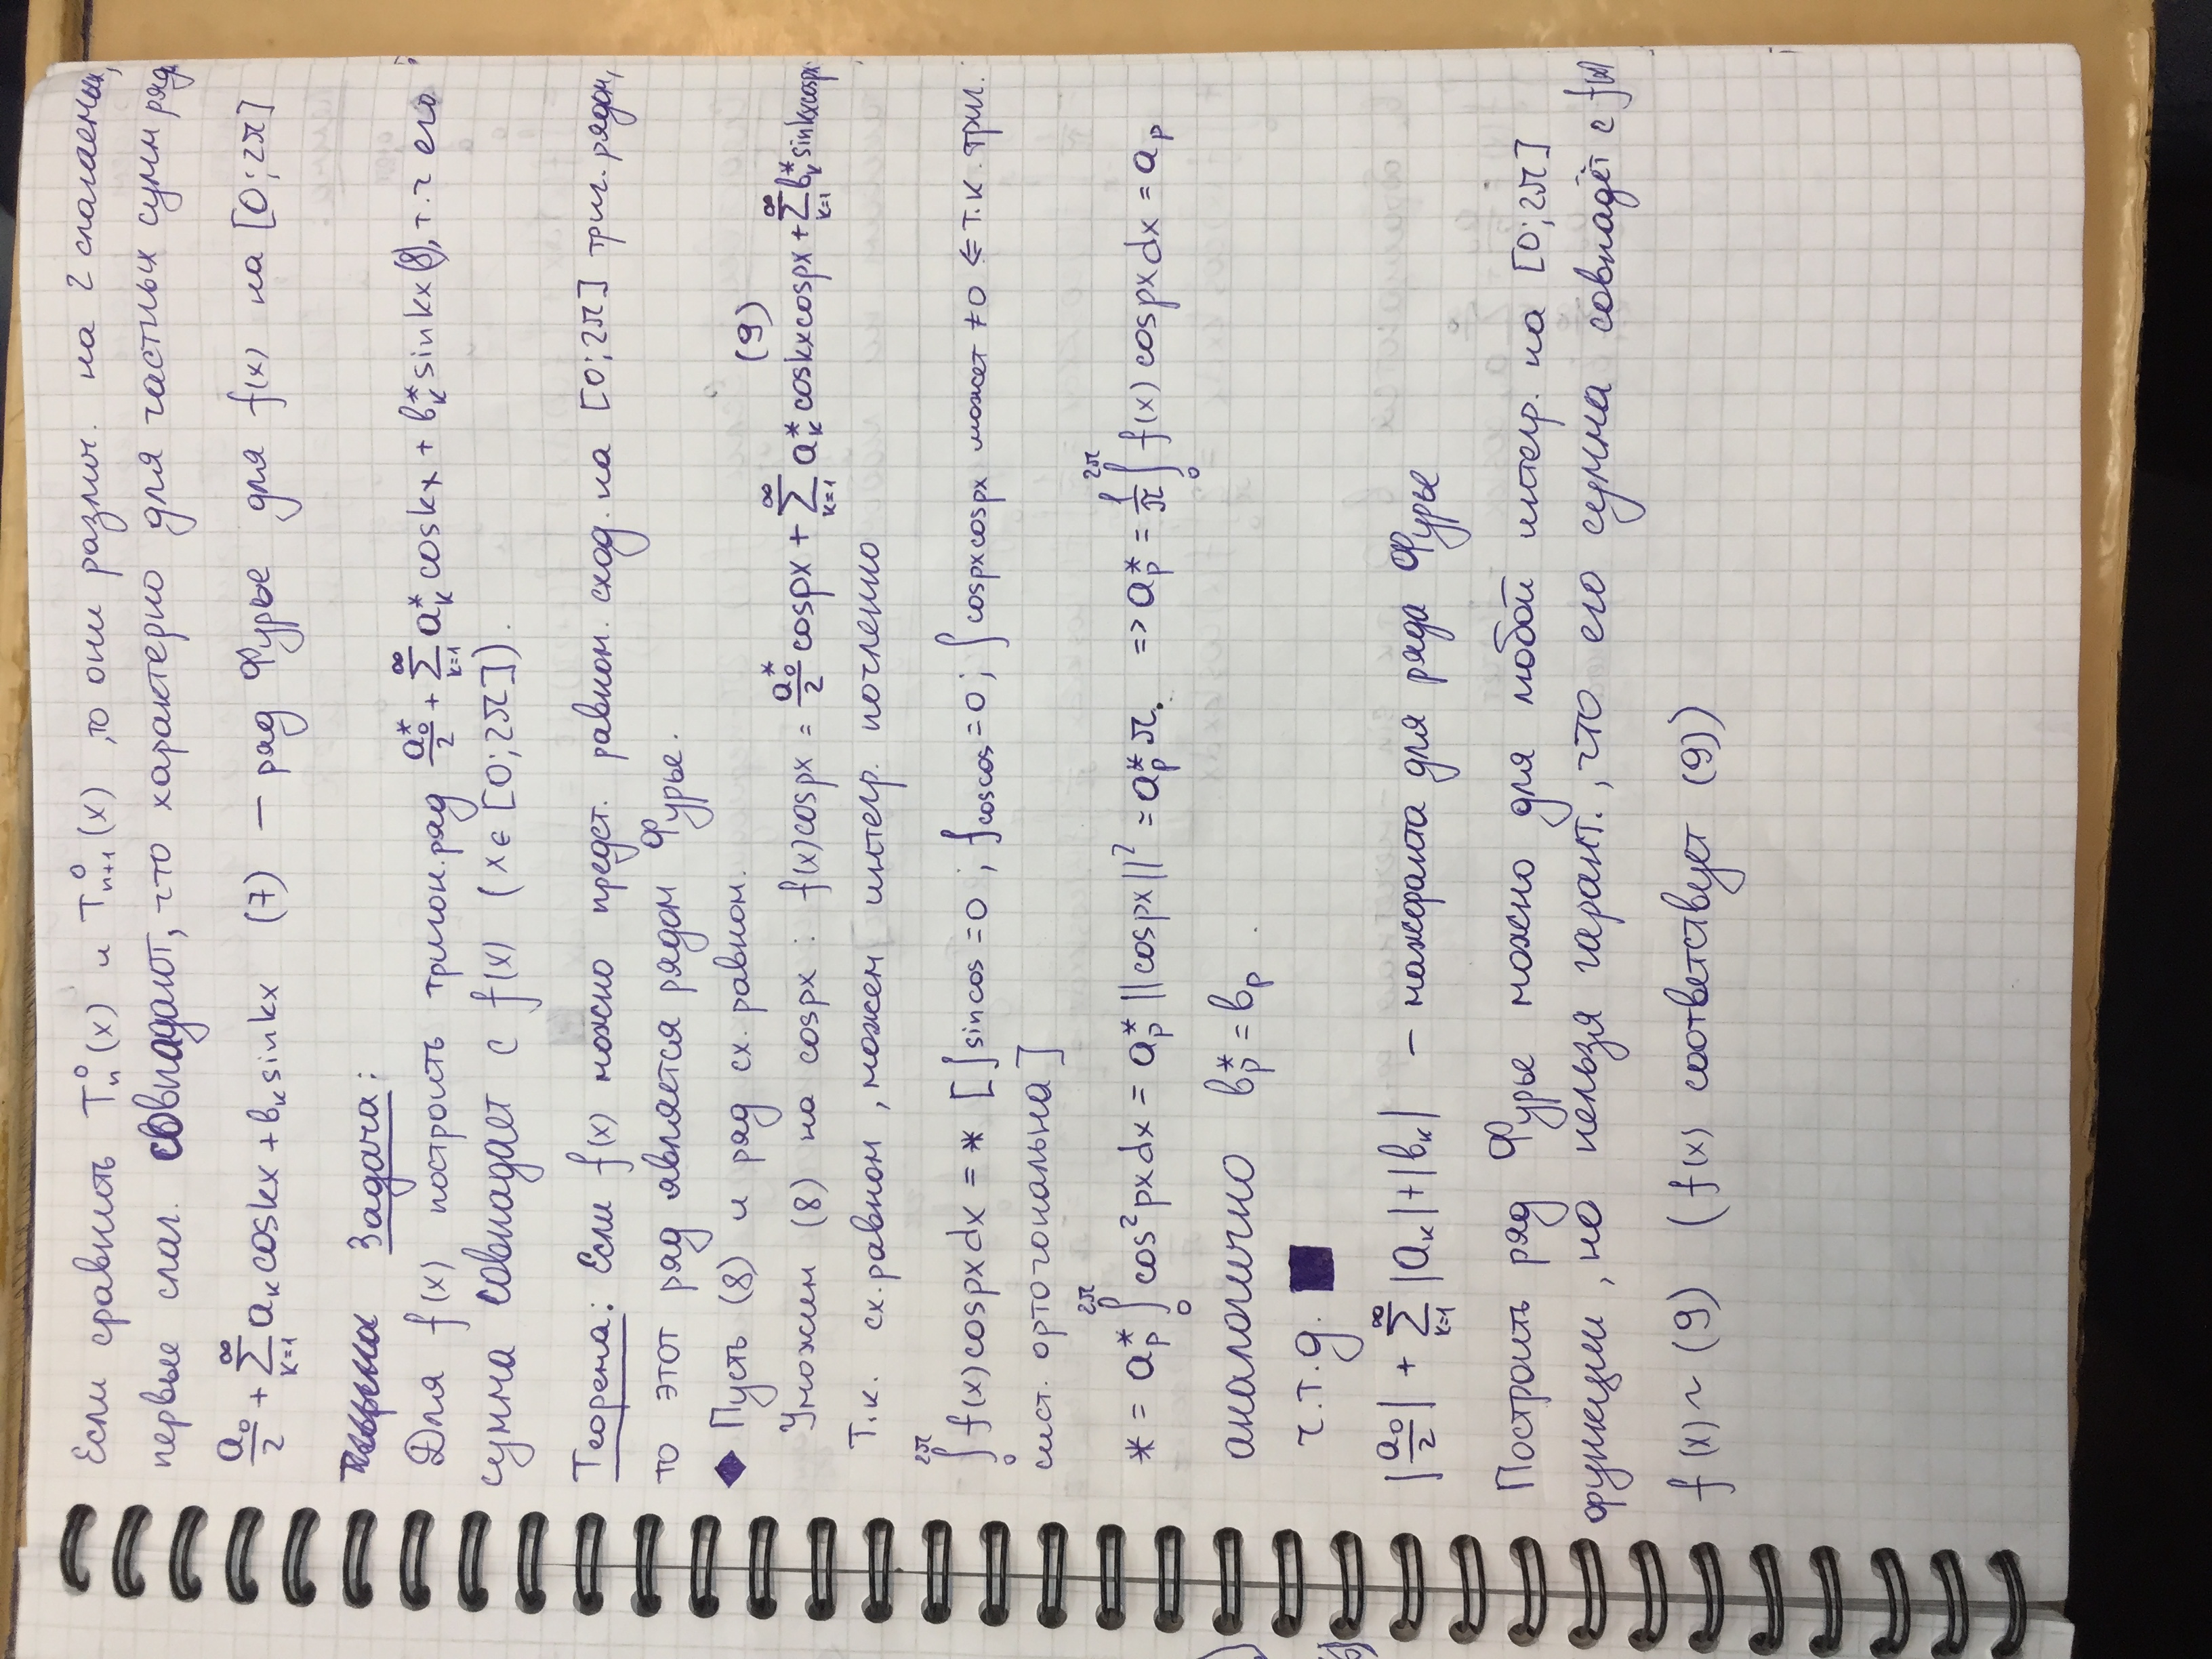 Если сравнить Tₙ⁰(x) и Tₙ₊₁⁰(x), то они различ. на 2 слагаемых,
первые слаг. совпадают, что характерно для частных сумм ряда
a₀/2 + ∑_{k=1}^{∞} aₖcoskx + bₖsinkx (7) – ряд Фурье для f(x) на [0;2π]
Задача:
Для f(x) построить тригон. ряд a₀*/2 + ∑_{k=1}^{∞} aₖ* coskx + bₖ* sinkx (8), т.ч его
сумма совпадает с f(x) (x ∈ [0;2π]).
Теорема: Если f(x) можно предст. равном. сход. на [0;2π] триг. рядом,
то этот ряд является рядом Фурье.
◆ Пусть (8) и ряд сх. равном.
(9)
Умножим (8) на cospx : f(x)cospx = a₀*/2 cospx + ∑_{k=1}^{∞} aₖ* coskxcospx + ∑_{k=1}^{∞} bₖ* sinkxcospx
Т.к. сх. равном, можем интегр. почленно
∫₀^{2π} f(x)cospxdx = * [∫sincos = 0 ; ∫coscos = 0 ; ∫cospxcospx может ≠ 0 ⇐ т.к. триг.
сист. ортогональна]
* = aₚ* ∫₀^{2π} cos²pxdx = aₚ* ||cospx||² = aₚ* π. => aₚ* = 1/π ∫₀^{2π} f(x) cospxdx = aₚ
аналогично bₚ* = bₚ.
ч.т.д. ■
|a₀/2| + ∑_{k=1}^{∞} |aₖ| + |bₖ| – мажоранта для ряда Фурье
Построить ряд Фурье можно для любой интегр. на [0;2π]
функции, но нельзя гарант., что его сумма совпадёт с f(x)
f(x) ~ (9) (f(x) соответствует (9))